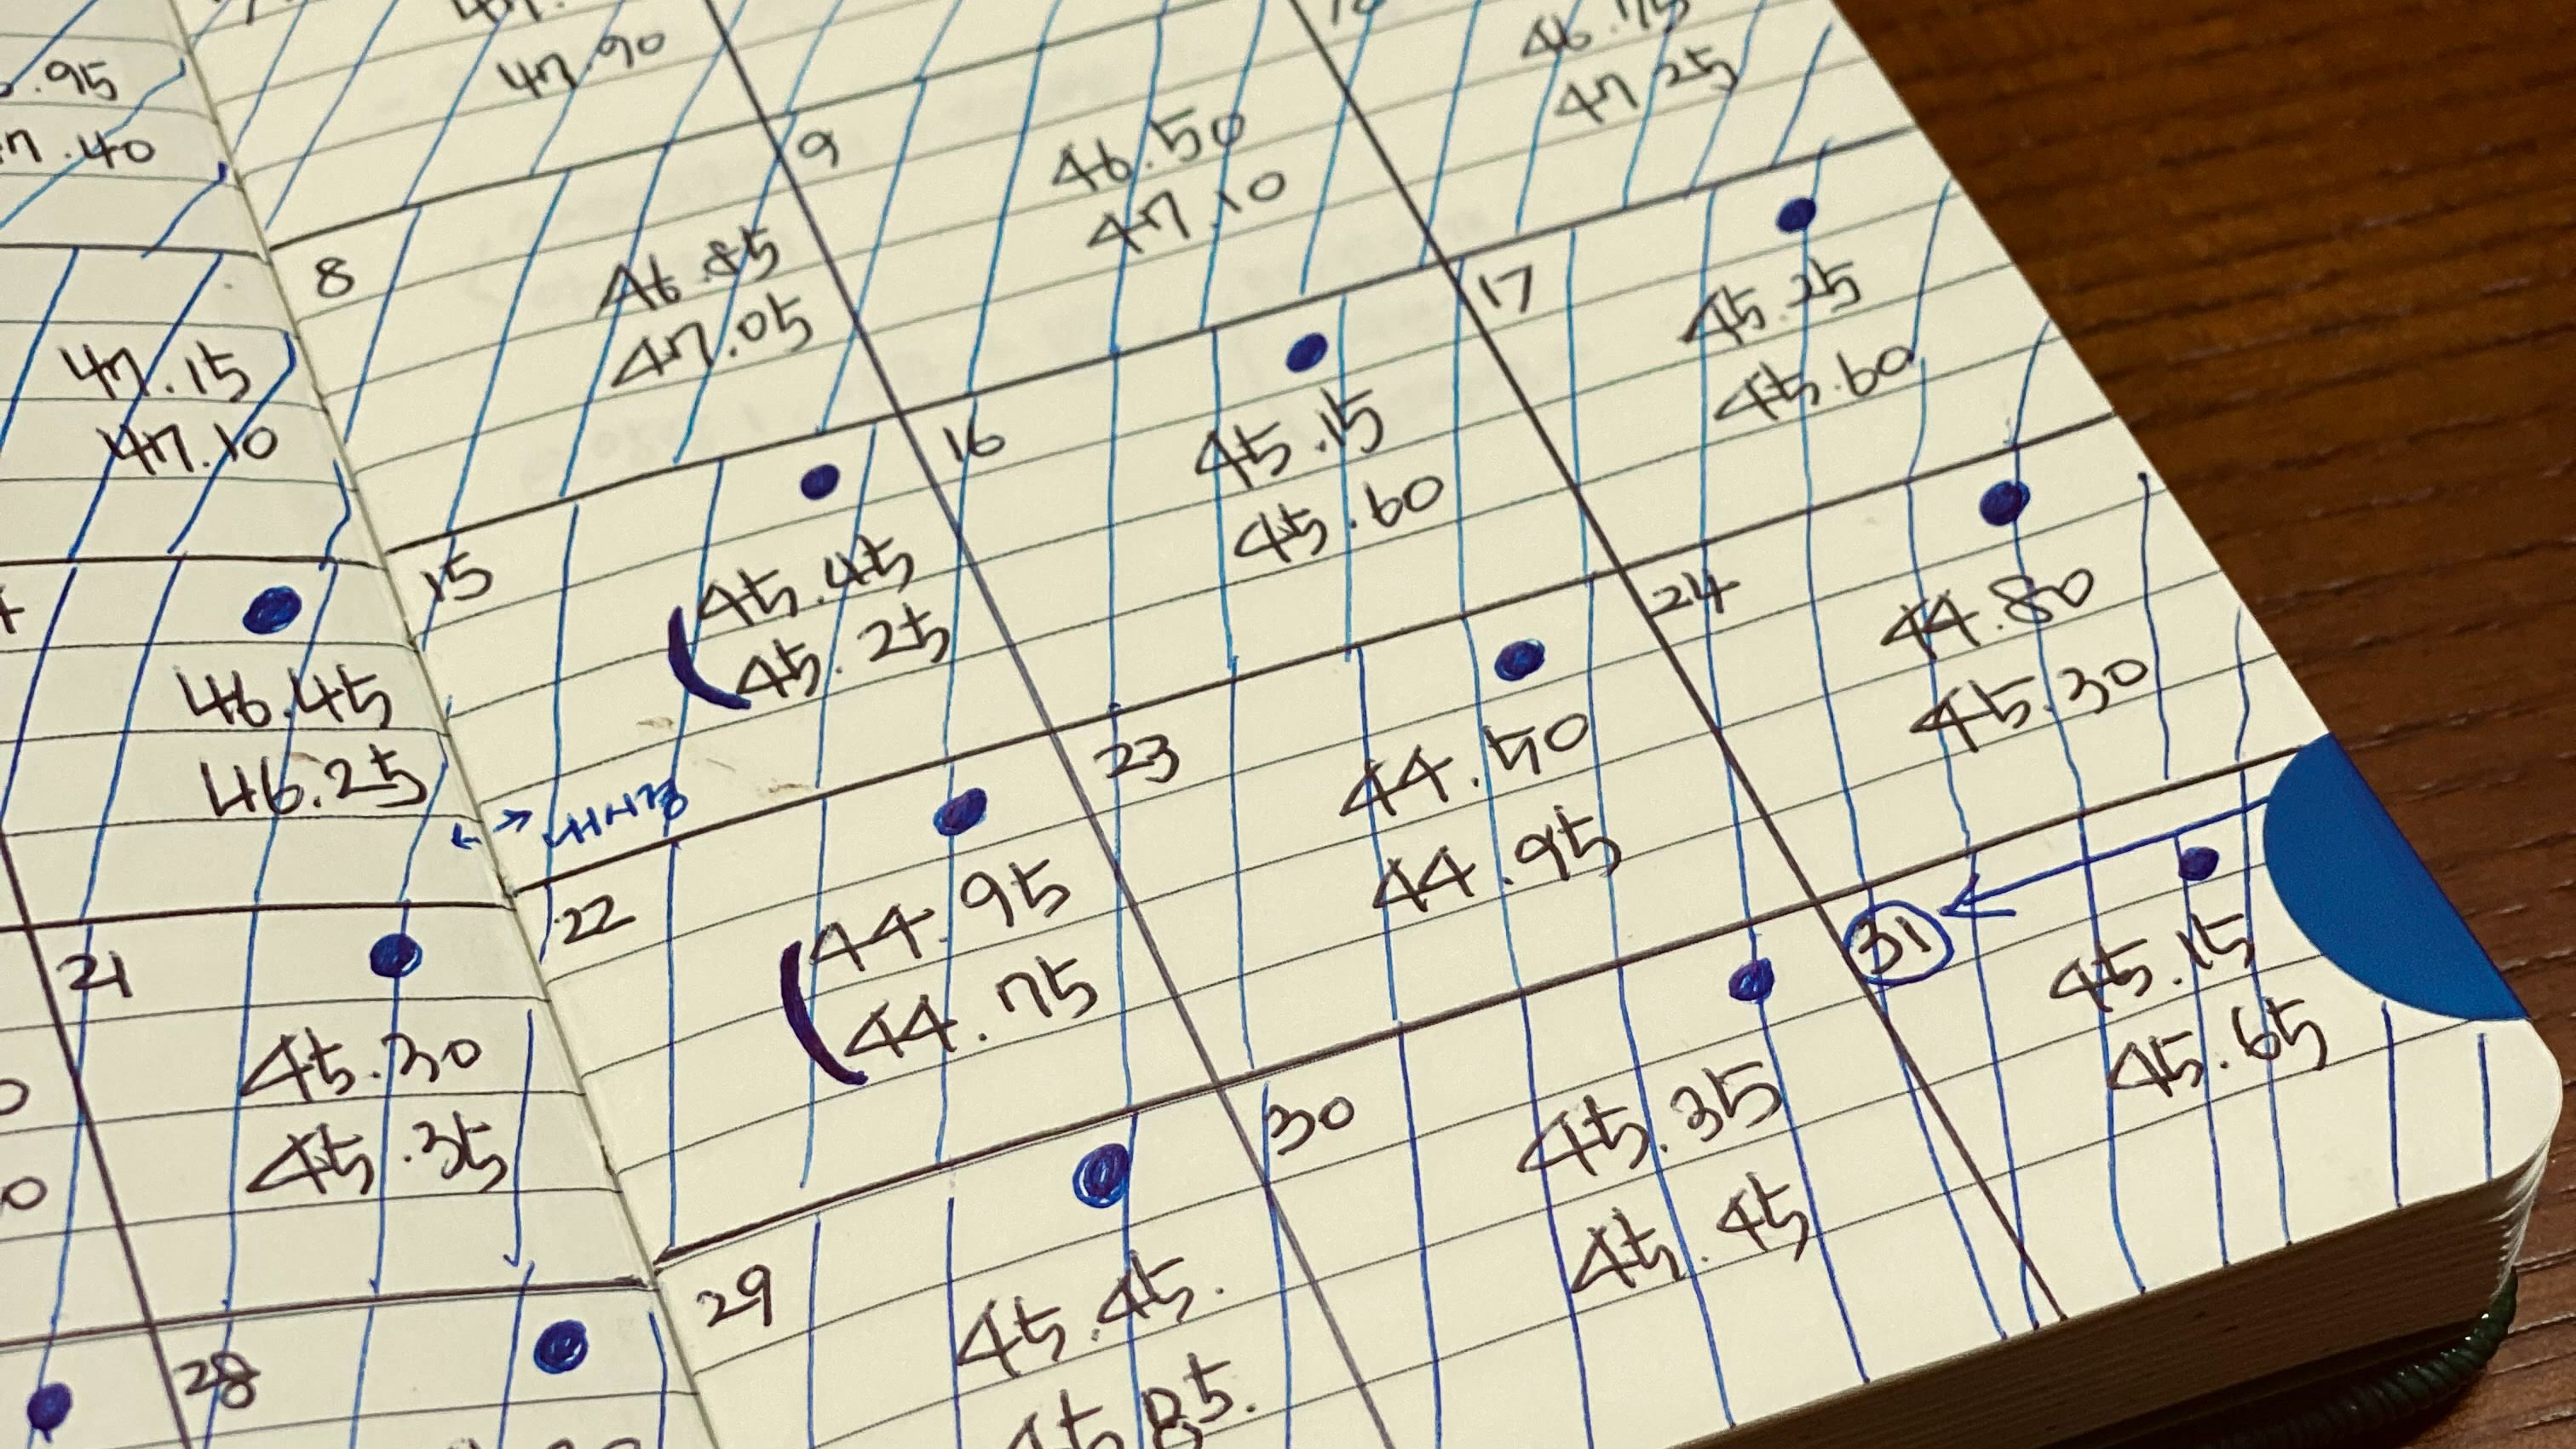 47.90
46.75
47.25
.95
.40
8
46.85
47.05
9
46.50
47.10
47.15
47.10
15
45.45
45.25
16
45.15
45.60
17
45.25
45.60
46.45
46.25
22
44.95
44.75
23
44.50
44.95
24
44.80
45.30
21
45.30
45.35
29
45.45.
45.85.
30
45.35
45.45
31
45.15
45.65
28